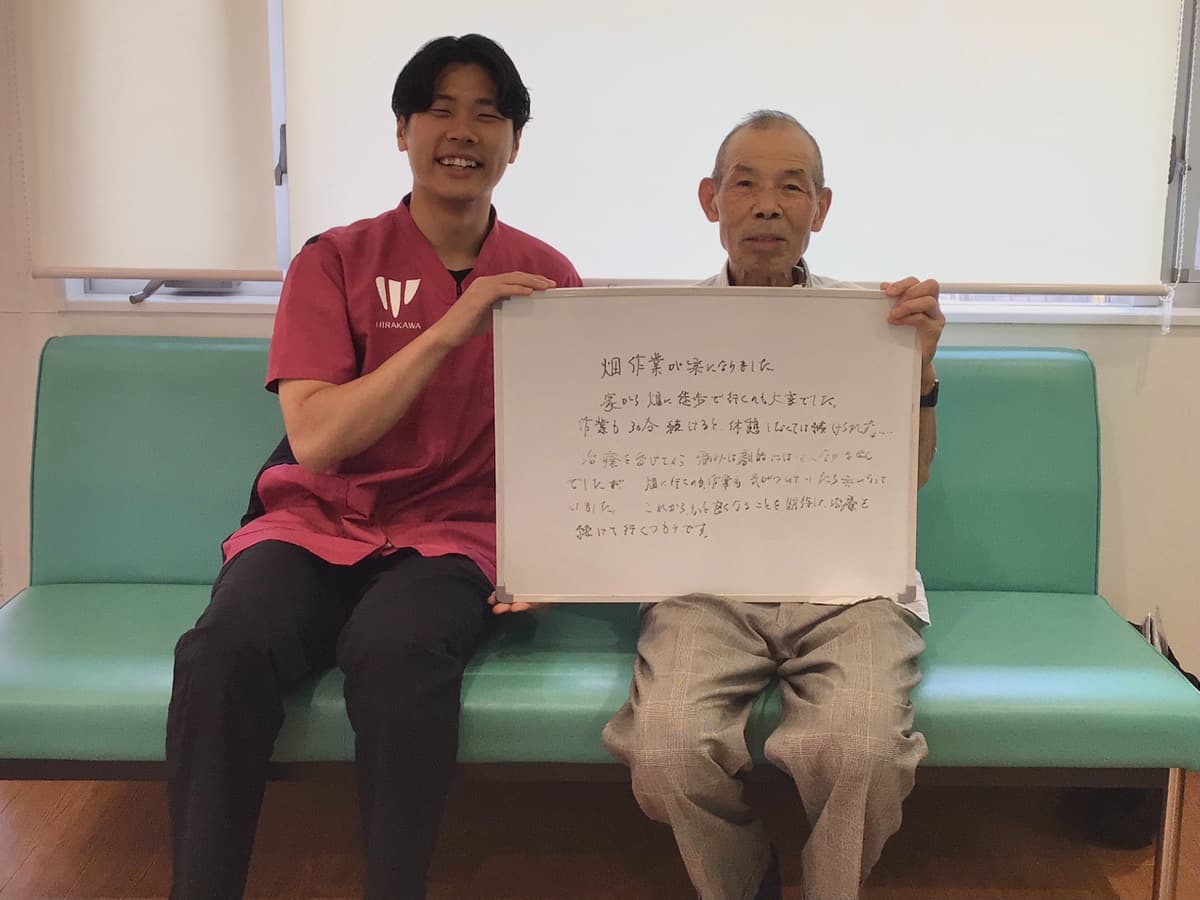 HIRAKAWA
畑作業が楽になりました。
家から畑に徒歩で行くのも大変でした。
作業も30分続けると、休憩しなくては続けられない....
治療を受けてから 痛みは劇的には なりません
でしたが 畑に行くのも、作業も 気がついていたら楽になって
いました。 これからもっと良くなることを期待して、治療を
続けて行くつもりです。